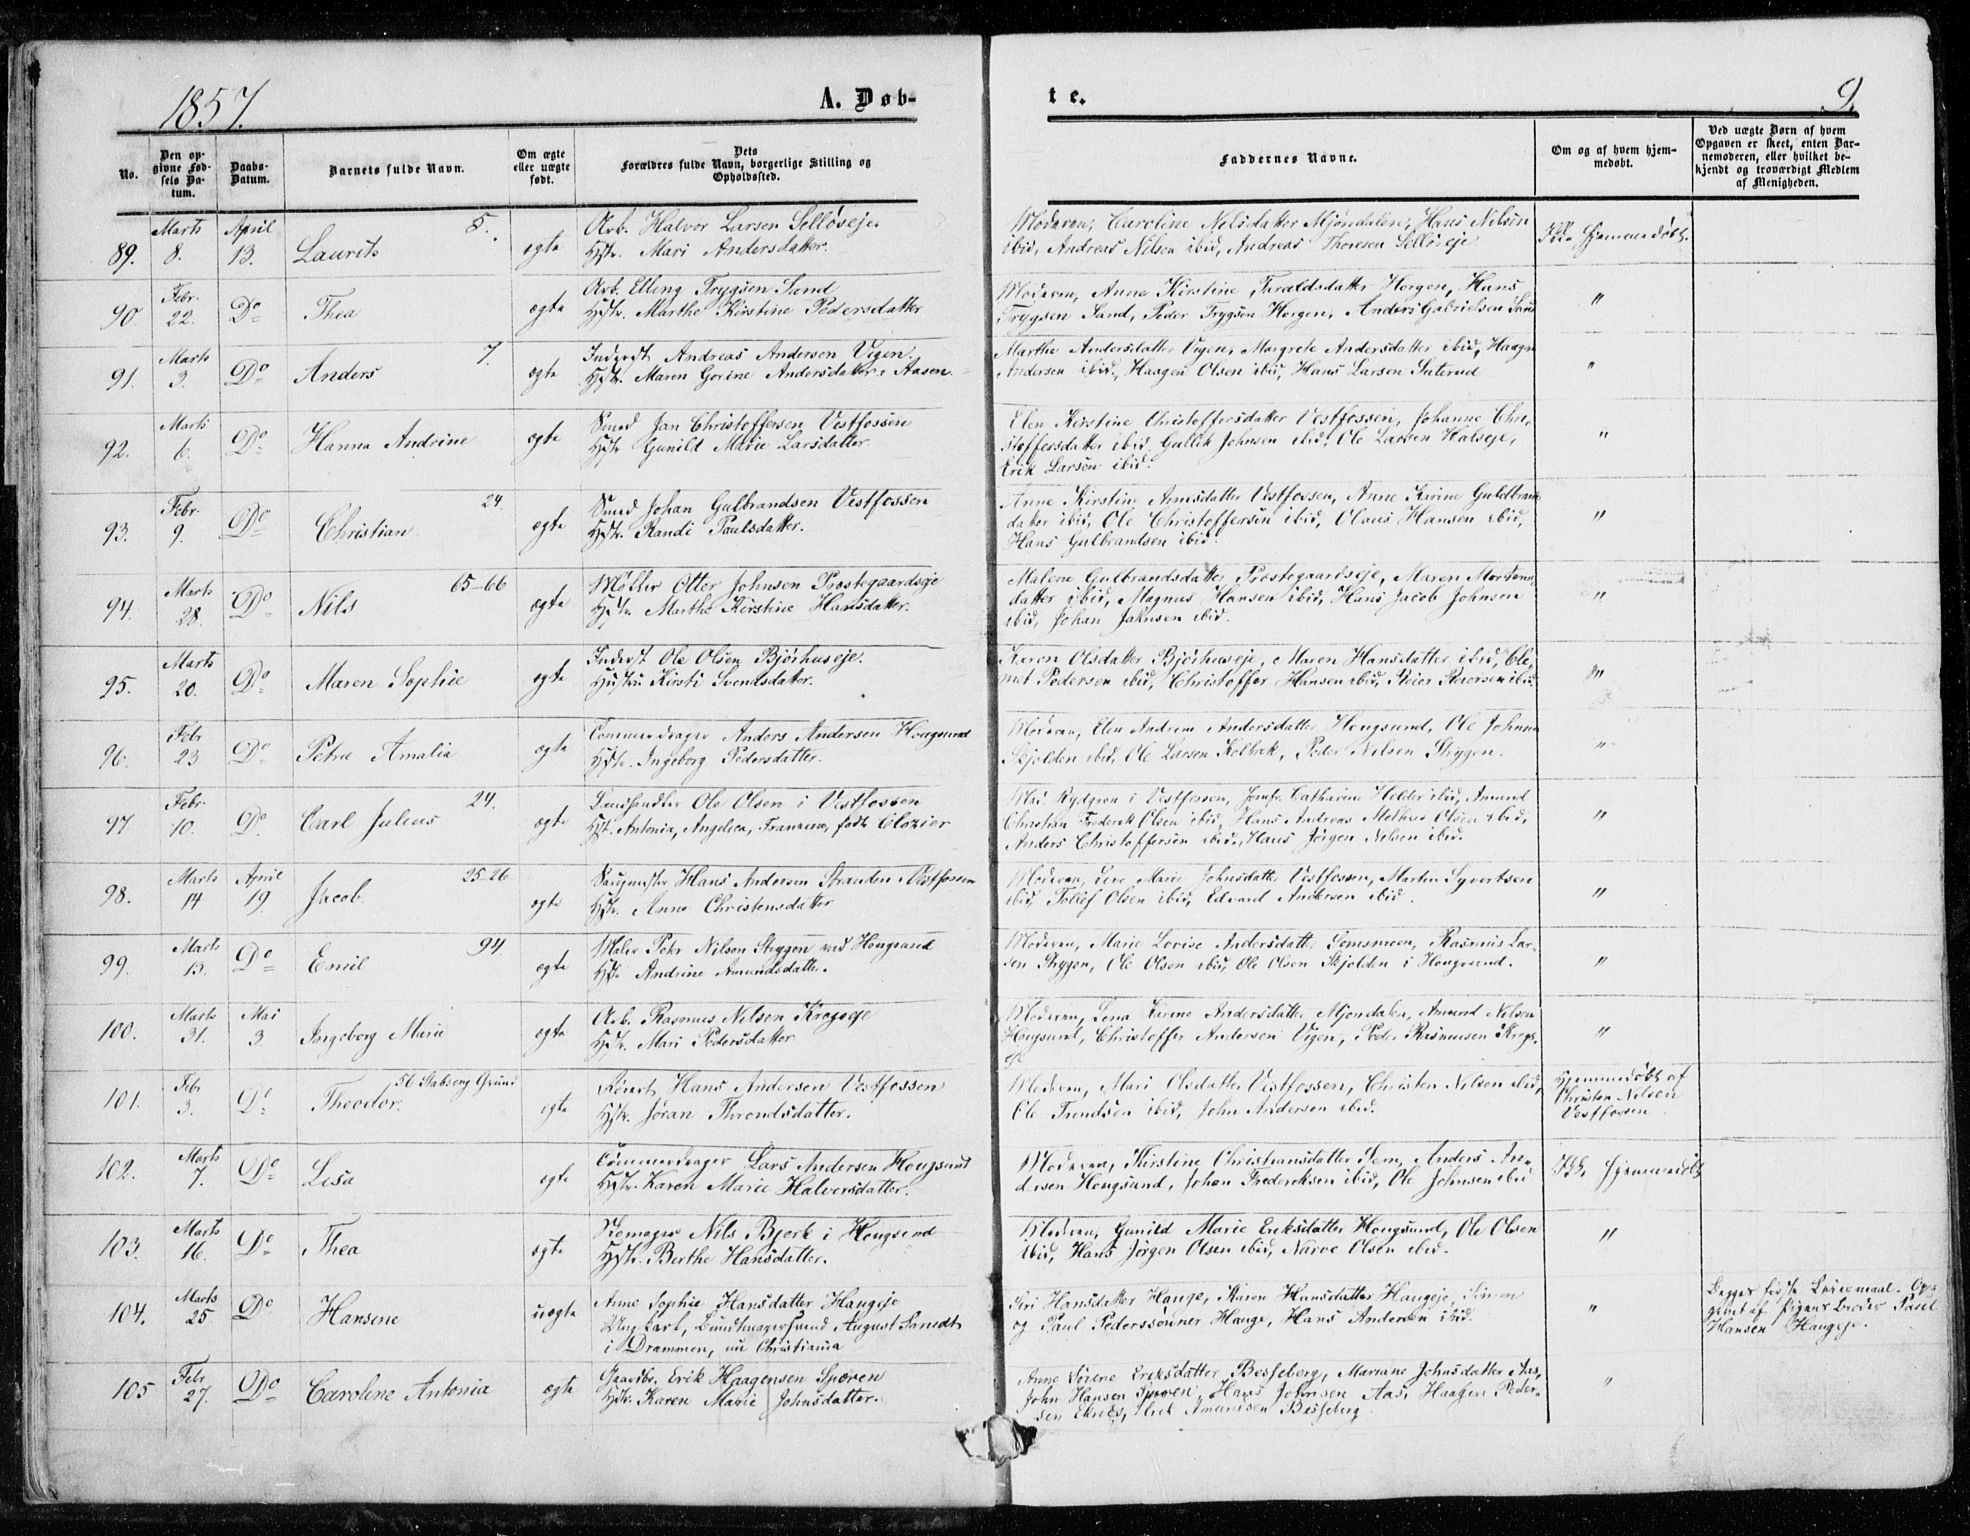 1857.
A. Døb-
te.
9.
No.
Den op-
givne Fød-
sels Da-
tum.
Daabs-
Datum.
Barnets fulde Navn.
Om ægte
eller uægte
født.
Dets
Forældres fulde Navn, borgerlige Stilling og
Opholdssted.
Faddernes Navne.
Om og af hvem hjem-
medøbt.
Ved uægte Børn af hvem
Opgaven er skeet, enten Bar-
nemoderen, eller hvilket be-
kjendt og troværdigt Medlem
af Menigheden.
89. Marts 8. April 13. Laurits 5. ægte
Arb. Halvor Larsen Selløseje.
Hstr. Mari Andersdatter.
Moderen, Caroline Nelsdatter Mjøndalen, Hans Nelsen
ibid, Andreas Nelsen ibid, Andreas Thoresen Selløseje
Ikke hjemmedøbt.
90. Febr. 22. Do Thea ægte
Arb. Elling Trygsen Sand
Hstr. Marthe Kirstine Pedersdatter
Moderen, Anne Kirstine Taraldsdatter Horgen, Hans
Trygsen Sand, Peder Trygsen Horgen, Anders Gabrielsen Sand
"
91. Marts 3. Do Anders 7. ægte
Inderst Andreas Andersen Vigen.
Hstr. Maren Gorine Andersdatter Aasen.
Marthe Andersdatter Vigen, Margrete Andersdatter ibid, Haagen
Andersen ibid., Haagen Olsen ibid, Hans Larsen Seterud
"
92. Marts 6. Do Hanna Andrine ægte
Smed Jan Christoffersen Vestfossen
Hstr Gunild Marie Larsdatter
Elen Kirstine Christoffersdatter Vestfossen, Johanne Chri-
stoffersdatter ibid, Gullik Johnsen ibid, Ole Larsen Halseje,
Erik Larsen ibid.
"
93. Febr. 9. Do Christian 24. ægte
Smed Johan Gulbrandsen Vestfossen
Hstr. Randi Paulsdatter.
Anne Kirstine Arnesdatter Vestfossen, Anne Karine Guldbrands
datter ibid, Ole Christoffersen ibid, Olaus Hansen ibid,
Hans Gulbrandsen ibid.
"
94. Marts 28. Do Nils 65-66 ægte
Møller Otter Johnsen Præstegaardseje
Hstr. Marthe Kirstine Hansdatter.
Malene Gulbrandsdatter Præstegaardseje, Maren Mortens
datter ibid, Magnus Hansen ibid, Hans Jacob Johnsen
ibid, Johan Jahnsen ibid.
"
95. Marts 20. Do Maren Sophie ægte
Inderst Ole Olsen Bjørhuseje.
Hustru Kirsti Svendsdatter.
Karen Olsdatter Bjørhuseje, Maren Hansdatter ibid, Cle-
met Pedersen ibid, Christoffer Hansen ibid, Peder Pedersen ibid.
"
96. Febr 23 Do Petra Amalia ægte
Tømmerdrager Anders Andersen Hougsund
Hstr. Ingeborg Pedersdatter.
Moderen, Elen Andrea Andersdatter Hougsund, Ole Johnsen
Skjolden ibid, Ole Larsen Kolbræk, Peder Nelsen Strygen.
"
97 Febr. 10. Do Carl Julius 24. ægte
Landhandler Ole Olsen i Vestfossen
Hst. Antonia, Angelica, Franzena, født Clozier
Mad. Rydgren i Vestfossen, Jomfr. Catharine Holder ibid, Amund
Christian Frederik Olsen ibid, Hans Andreas Melhus Olsen ibid,
Anders Christoffersen ibid., Hans Jørgen Nelsen ibid.
"
98. Marts 14 April 19. Jacob. 25-26 ægte
Saugmester Hans Andersen Stranden i Vestfossen
Hstr. Anne Christensdatter
Moderen, Live Marie Johnsdatter Vestfossen, Martin Syvertsen
ibid, Tollef Olsen ibid, Edvard Andersen ibid.
"
99. Marts 13. Do Emil 94. ægte
Maler Peter Nilsen Strygen ved Hougsund
Hstr Andrine Amundsdatter.
Moderen, Marie Lovise Andersdatt. Semsmoen, Rasmus Lar-
sen Strygen, Ole Olsen ibid, Ole Olsen Skjolden i Hougsund.
"
100. Marts 31. Mai 3 Ingeborg Marie ægte
Arb. Rasmus Nilsen Krogseje
Hstr. Mari Pedersdatter
Moderen, Lena Karine Andersdatter Mjøndalen, Amund Nelsen
Hougsund, Christoffer Andersen Vigen, Peder Rasmussen Krogs-
eje
"
101. Febr 3. Do Theodor. 56 Stabseng Grund ægte
Hans Andersen Vestfossen
Hstr. Jøran Throndsdatter.
Moderen, Mari Olsdatter Vestfossen, Christen Nilsen ibid,
Ole Trondsen ibid, John Andersen ibid.
Hjemmedøbt af
Christen Nilsen
Vestfossen
102. Marts 7. Do Lisa ægte
Tømmerdrager Lars Andersen Hougsund
Hstr. Karen Marie Halversdatter.
Moderen, Kirstine Christiansdatter Sem, Anders An-
dersen Hougsund, Johan Frederiksen ibid, Ole Johnsen ibid
Ikke hjemmedøbt
103. Marts 16. Do Thea ægte
Skomager Nils Bjerk i Hougsund
Hstr. Berthe Hansdatter.
Moderen, Gunild Marie Eriksdatter Hougsund, Ole Olsen
ibid, Hans Jørgen Olsen ibid, Narve Olsen ibid.
"
104. Marts 25. Do Hansene uægte
Anne Sophie Hansdatter Haugeje
Ung Karl, Bundtmagersvend August Sandt
i Drammen, nu Christiania
Siri Hansdatter Hauge, Karen Hansdatter Haugeje, Simen
og Paul Pederssønner Hauge, Hans Andersen ibid.
"
Begges første Leiermaal. Op-
givet af Pigens Broder Paul
Hansen Haugeje.
105 Febr 27. Do Carolene Antonia ægte
Gaardbr. Erik Haagensen Sporen
Hstr. Karen Marie Johnsdatter.
Anne Sørine Eriksdatter Besseberg, Mariane Johnsdatter Aas,
John Hansen Sporen, Hans Johnsen Aas, Haagen Peder-
sen, Erik Amundsen Besseberg
"